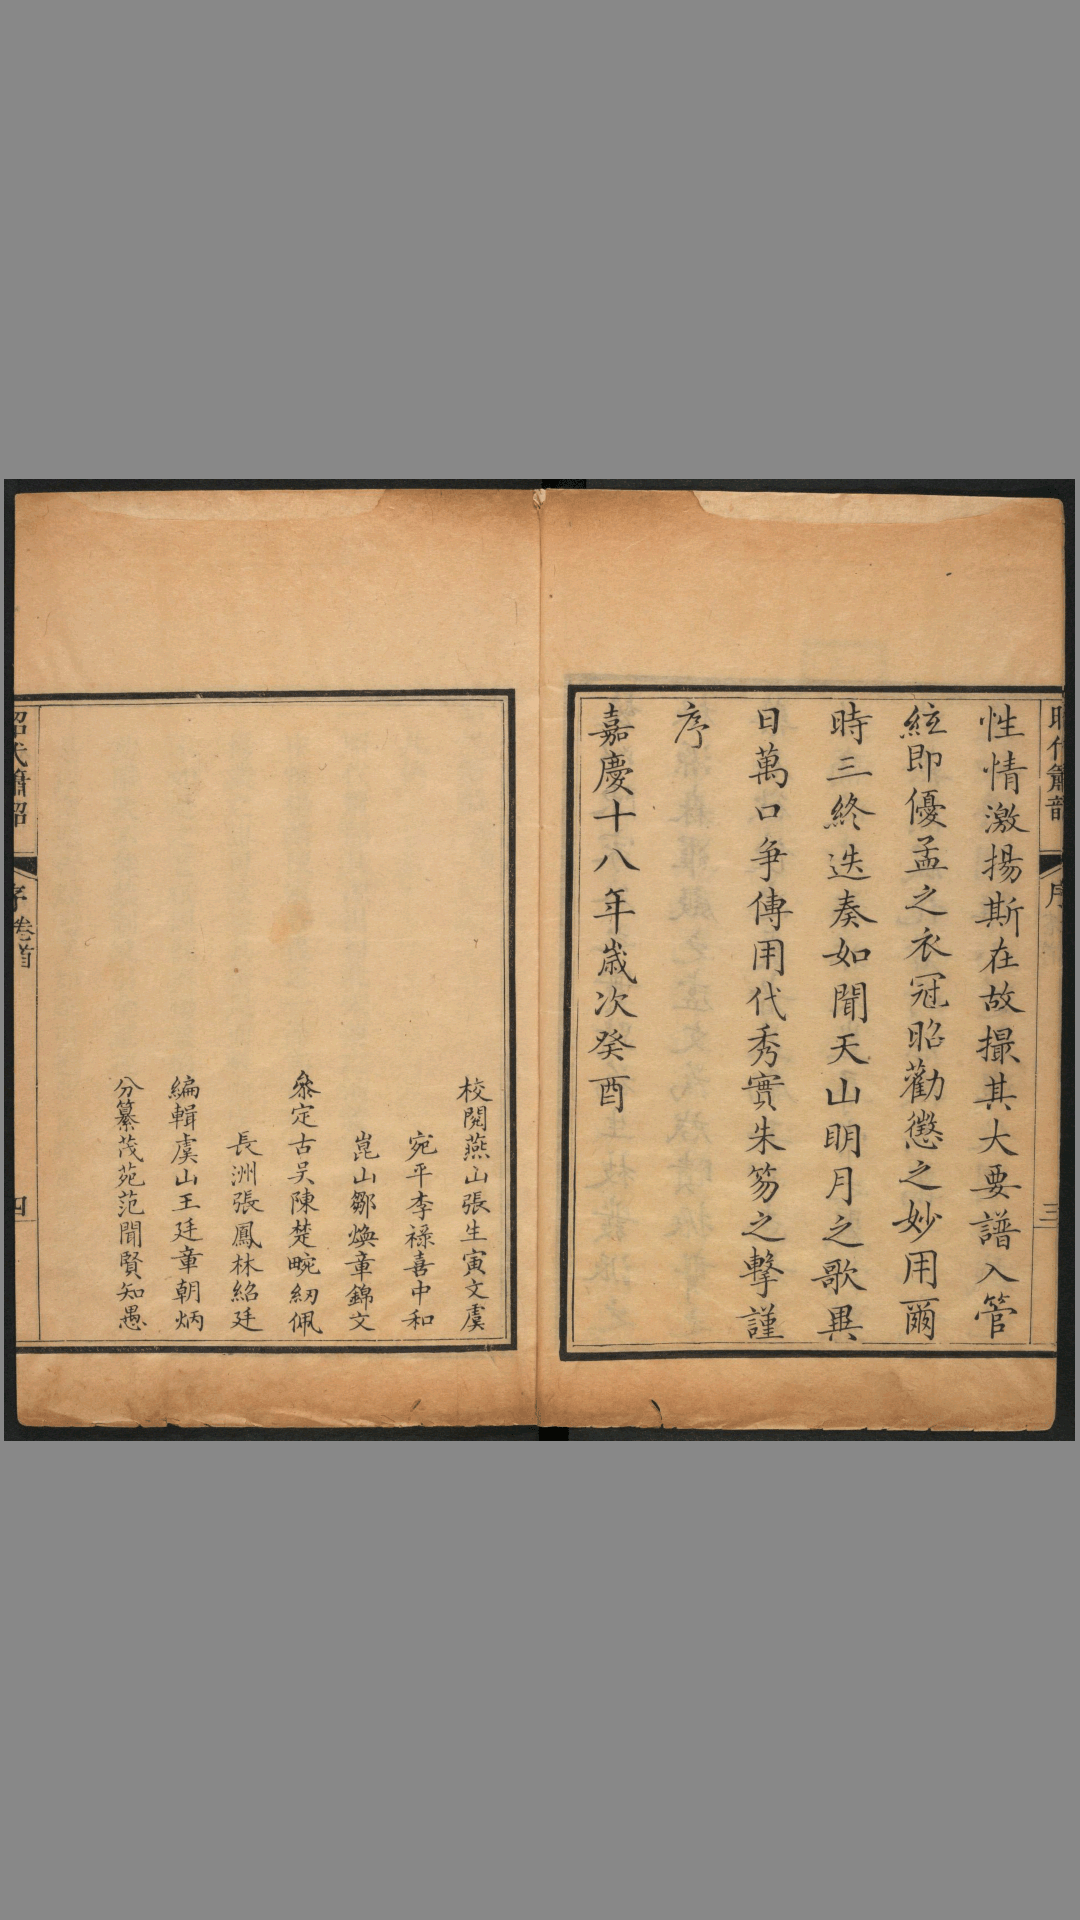 性情激揚斯在故撮其大要譜入管
絃即優孟之衣冠昭勸懲之妙用爾
時三終迭奏如聞天山明月之歌異
日萬口争傳用代秀實朱笏之擊謹
序
嘉慶十八年歲次癸酉
序
三
校閱燕山張生寅文虞
宛平李祿喜中和
崑山鄒煥章錦文
叅定古吴陳楚畹紉佩
長洲張鳳林紹廷
編輯虞山王廷章朝炳
分纂茂苑范聞賢知愚
昭代簫韶
序卷首
四